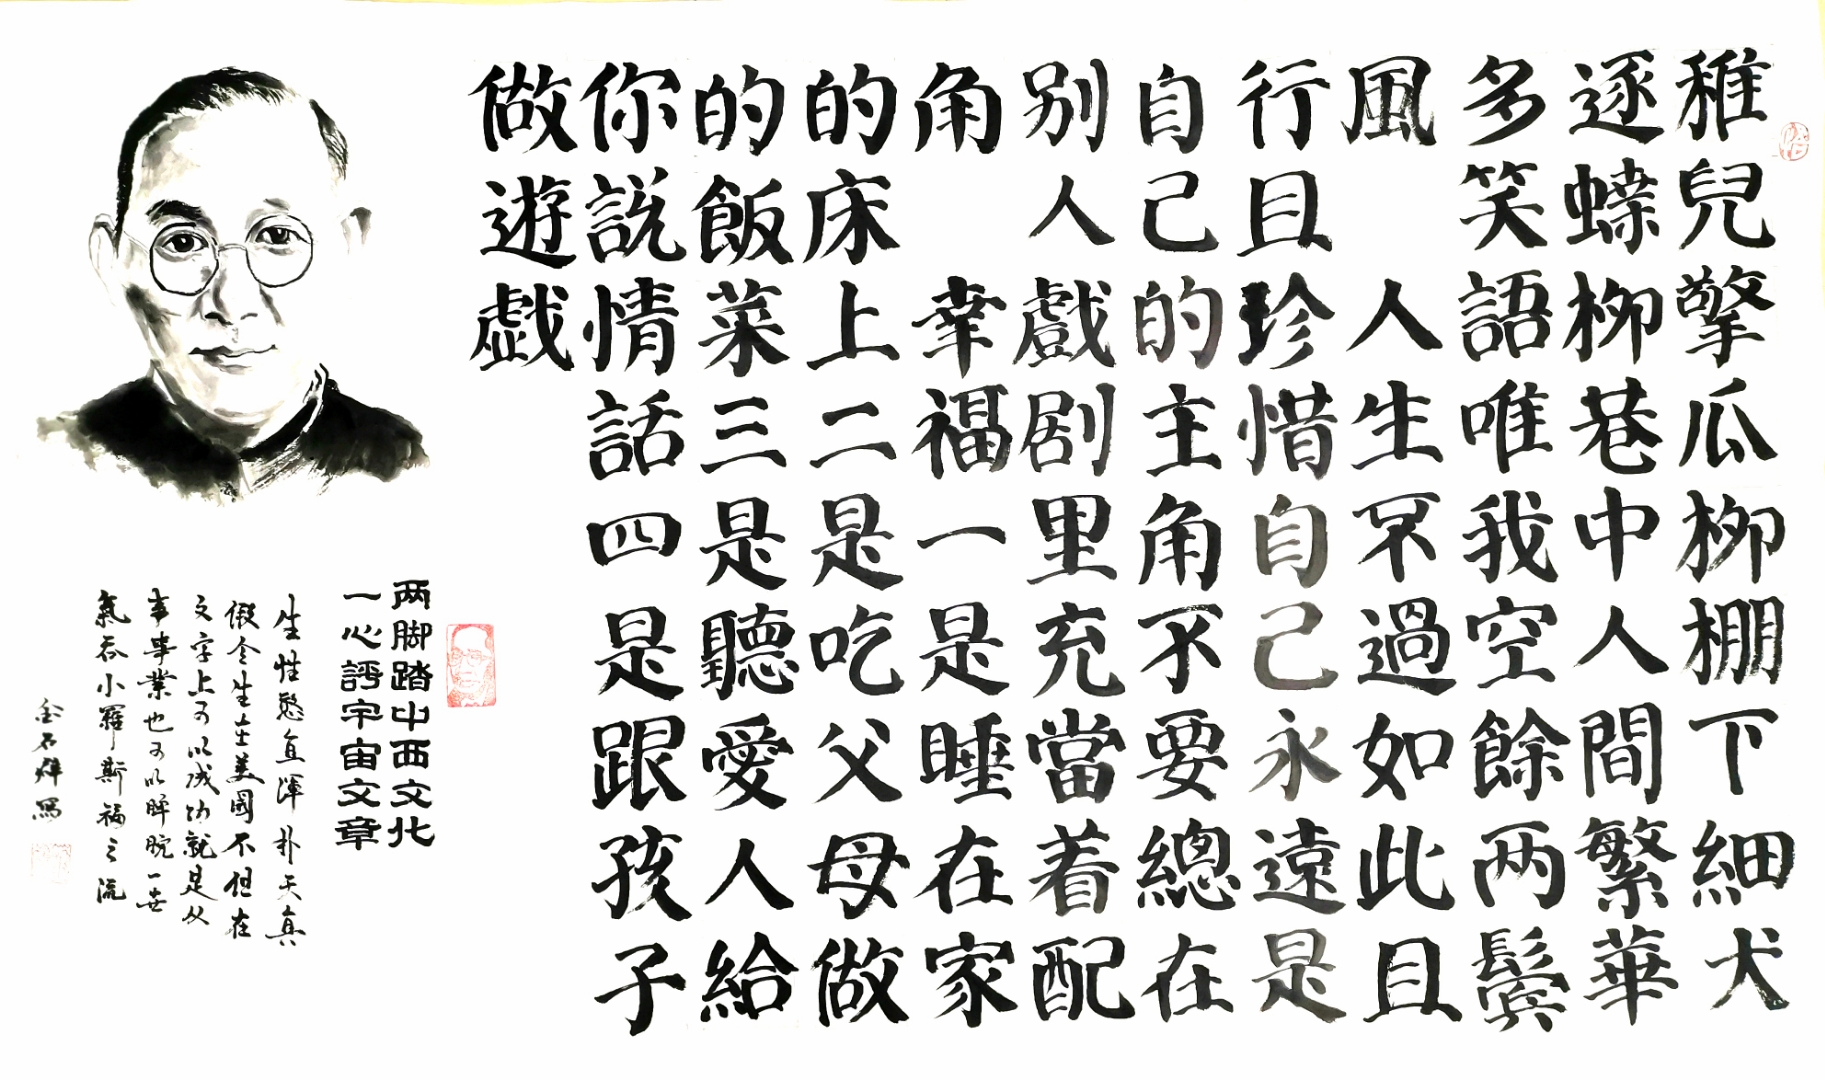 稚兒擎瓜柳棚下細犬
逐蝶柳巷中人間繁華
多笑語唯我空餘两鬓
風 人生不過如此且
行且珍惜自己永遠是
自己的主角不要總在
别人戲剧里充當着配
角 幸福一是睡在家
的床上二是吃父母做
的飯菜三是聽愛人給
你説情話四是跟孩子
做遊戯
两脚踏中西文化
一心評宇宙文章
生性憨直渾朴天真
假令生在美國不但在
文字上可以成功就是从
事事業也可以睥睨一世
氣吞小羅斯福之流
金石輝寫